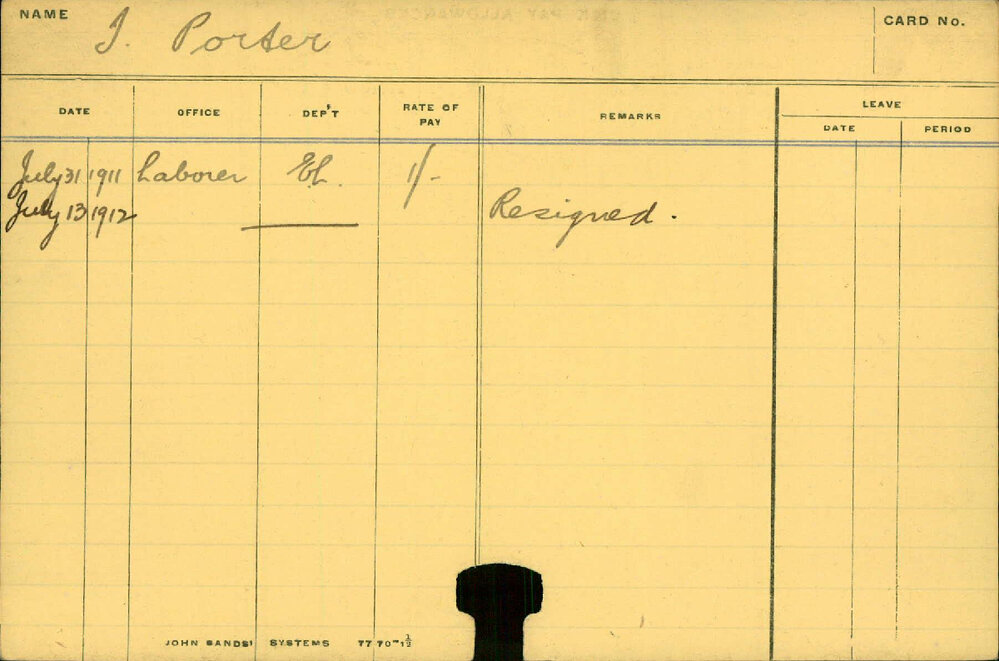 NAME J. Porter CARD No.
DATE OFFICE DEP'T RATE OF PAY REMARKS LEAVE
DATE PERIOD
July 31 1911 Laborer Eh. 1/-
July 13 1912 Resigned.
JOHN SANDS' SYSTEMS 77 70